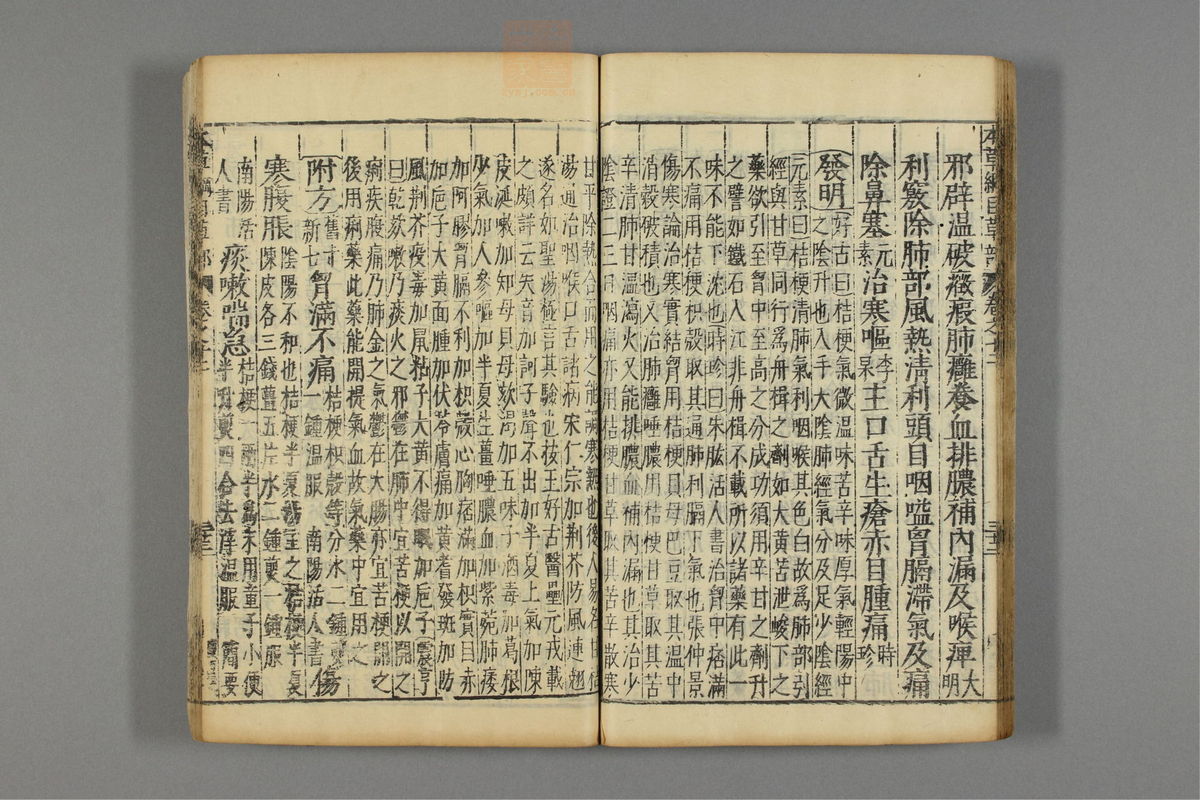 本草綱目草部 卷之十二 三十二
邪辟温破癥瘕肺癰養血排膿補內漏及喉痺大明
利竅除肺部風熱清利頭目咽嗌胷膈滯氣及痛
除鼻塞元素治寒嘔李杲主口舌生瘡赤目腫痛時珍
發明 好古曰桔梗氣微温味苦辛味厚氣輕陽中
之陰升也入手太陰肺經氣分及足少陰經
元素曰桔梗清肺氣利咽喉其色白故為肺部引
經與甘草同行為舟楫之劑如大黃苦泄峻下之
藥欲引至胷中至高之分成功須用辛甘之劑升
之譬如鐵石入江非舟楫不載所以諸藥有此一
味不能下沈也時珍曰朱肱活人書治胷中痞滿
不痛用桔梗枳殼取其通肺利膈下氣也張仲景
傷寒論治寒實結胷用桔梗貝母巴豆取其温中
消穀破積也又治肺癰唾膿用桔梗甘草取其苦
辛清肺甘温瀉火又能排膿血補內漏也其治少
陰證二三日咽痛亦用桔梗甘草取其苦辛散寒
甘平除熱合而用之能調寒熱也後人易名甘桔
湯通治咽喉口舌諸病宋仁宗加荆芥防風連翹
遂名如聖湯極言其驗也按王好古醫壘元戎載
之頗詳云失音加訶子聲不出加半夏上氣加陳
皮涎嗽加知母貝母欬渴加五味子酒毒加葛根
少氣加人參嘔加半夏生薑唾膿血加紫菀肺痿
加阿膠胷膈不利加枳殼心胸痞滿加枳實目赤
加巵子大黃面腫加伏苓膚痛加黃耆發斑加防
風荆芥疫毒加鼠粘子大黃不得眠加巵子震亨
曰乾欬嗽乃痰火之邪鬱在肺中宜苦梗以開之
痢疾腹痛乃肺金之氣鬱在大腸亦宜苦梗開之
後用痢藥此藥能開提氣血故氣藥中宜用之
附方 舊十新七 胷滿不痛 桔梗枳殼等分水二鍾煎一鍾温服 南陽活人書 傷
寒腹脹 陰陽不和也桔梗半夏湯主之桔梗半夏陳皮各三錢薑五片水二鍾煎一鍾服
南陽活人書 痰嗽喘急 桔梗一兩半為末用童子小便半升煎四合去滓温服 簡要
本草綱目草部 卷之十二 三十二